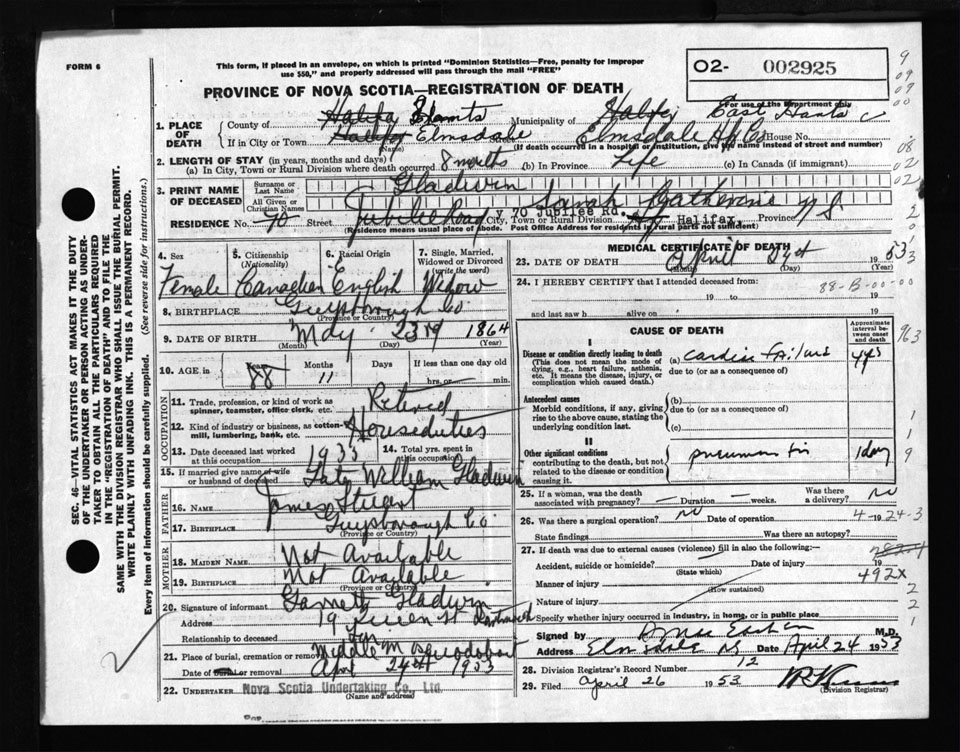 FORM 6
This form, if placed in an envelope, on which is printed "Dominion Statistics—Free, penalty for improper
use $50," and properly addressed will pass through the mail "FREE"
O2- 002925
PROVINCE OF NOVA SCOTIA—REGISTRATION OF DEATH
For use of the Department only
1. PLACE OF DEATH
County of Halifax Hants Municipality of Halifax East Hants
If in City or Town Halifax Elmsdale Street Elmsdale House No.
(Name) (If death occurred in a hospital or institution, give the name instead of street and number)
2. LENGTH OF STAY (in years, months and days)
(a) In City, Town or Rural Division where death occurred 8 months (b) In Province Life (c) In Canada (if immigrant)
3. PRINT NAME OF DECEASED
Surname or Last Name Gladwin
All Given or Christian Names Sarah Catherine
70 Jubilee Rd.
RESIDENCE No. 70 Street Jubilee Road City, Town or Rural Division Halifax, Province N S
(Residence means usual place of abode. Post Office Address for residents in rural parts not sufficient)
4. Sex Female
5. Citizenship (Nationality) Canadian
6. Racial Origin English
7. Single, Married, Widowed or Divorced (write the word) Widow
8. BIRTHPLACE Guysborough Co
(Province or Country)
9. DATE OF BIRTH May 23rd 1864
(Month) (Day) (Year)
10. AGE in Years 88 Months 11 If less than one day old hrs. or min.
OCCUPATION
11. Trade, profession, or kind of work as spinner, teamster, office clerk, etc. Retired
12. Kind of industry or business, as cotton-mill, lumbering, bank, etc. Houseduties
13. Date deceased last worked at this occupation 1933
14. Total yrs. spent in this occupation
15. If married give name of wife or husband of deceased Late William Gladwin
FATHER
16. NAME James Stuart
17. BIRTHPLACE Guysborough Co
(Province or Country)
MOTHER
18. MAIDEN NAME Not Available
19. BIRTHPLACE Not Available
(Province or Country)
20. Signature of informant Garnett Gladwin
Address 19 Queen St Dartmouth
Relationship to deceased Son
21. Place of burial, cremation or removal Middle Musquodoboit
Date of burial or removal April 24th 1953
22. UNDERTAKER Nova Scotia Undertaking Co., Ltd.
(Name and address)
MEDICAL CERTIFICATE OF DEATH
23. DATE OF DEATH April 1953
(Month) (Day) (Year)
24. I HEREBY CERTIFY that I attended deceased from:
88-B-00-00
19 to 19
and last saw h alive on 19
CAUSE OF DEATH
Approximate interval between onset and death
I
Disease or condition directly leading to death
(This does not mean the mode of dying, e.g., heart failure, asthenia, etc. It means the disease, injury, or complication which caused death.)
(a) Cardiac Failure
due to (or as a consequence of)
Antecedent causes
Morbid conditions, if any, giving rise to the above cause, stating the underlying condition last.
(b)
due to (or as a consequence of)
(c)
II
Other significant conditions contributing to the death, but not related to the disease or condition causing it.
1 day
25. If a woman, was the death associated with pregnancy? Duration weeks. Was there a delivery? no
26. Was there a surgical operation? No Date of operation 19
State findings Was there an autopsy?
27. If death was due to external causes (violence) fill in also the following:—
Accident, suicide or homicide? Date of injury 19
(State which)
Manner of injury 492X
(How sustained)
Nature of injury
Specify whether injury occurred in industry, in home, or in public place
Signed by M.D.
Address Elmsdale NS Date April 24 1953
28. Division Registrar's Record Number 12
29. Filed April 26 1953
(Division Registrar)
SEC. 46—VITAL STATISTICS ACT MAKES IT THE DUTY
OF THE UNDERTAKER OR PERSON ACTING AS UNDER-
TAKER TO OBTAIN ALL THE PARTICULARS REQUIRED
IN THE "REGISTRATION OF DEATH" AND TO FILE THE
SAME WITH THE DIVISION REGISTRAR WHO SHALL ISSUE THE BURIAL PERMIT.
WRITE PLAINLY WITH UNFADING INK. THIS IS A PERMANENT RECORD.
Every item of information should be carefully supplied. (See reverse side for instructions.)